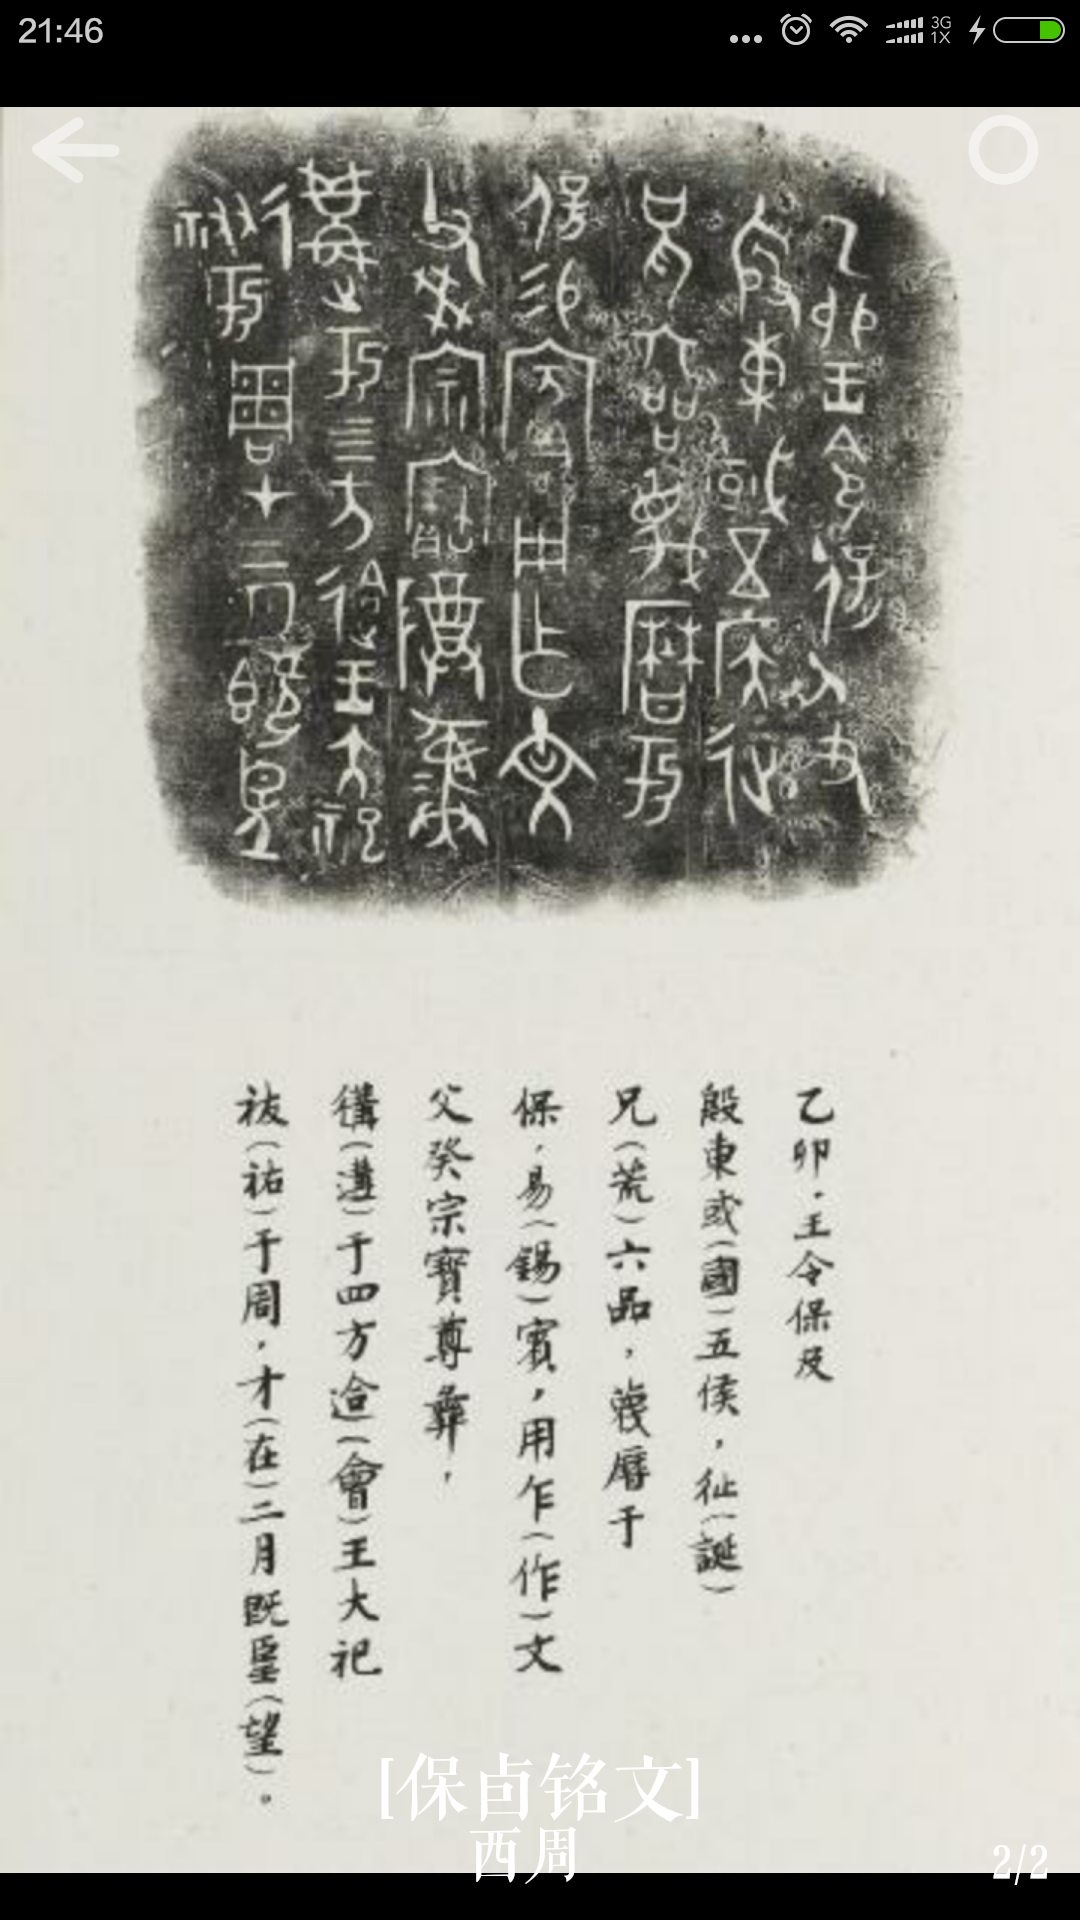 21:46
3G
1X
乙卯．王令保及
殷東或（國）五侯，𢓊（誕）
兄（荒）六品，蔑曆于
保．易（錫）賓，用乍（作）文
父癸宗寶尊彝，
遘（遘）于四方迨（會）王大祀
祓（祐）于周，才（在）二月既朢（望）。
[保卣铭文]
西周
2/2